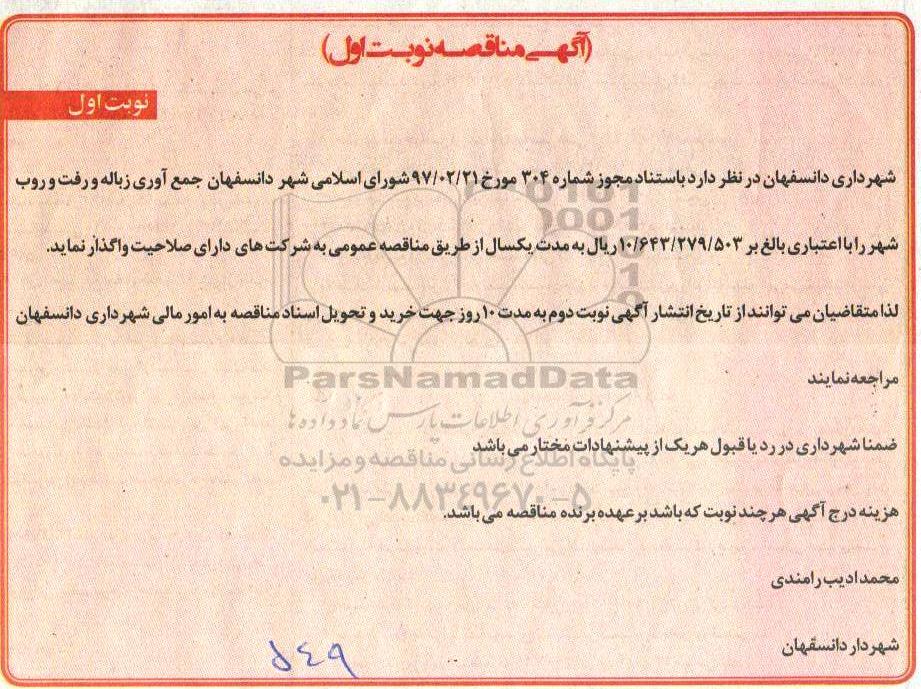 (آگهی مناقصه نوبت اول)
نوبت اول
شهرداری دانسفهان در نظر دارد باستناد مجوز شماره ۳۰۴ مورخ ۹۷/۰۲/۲۱ شورای اسلامی شهر دانسفهان جمع آوری زباله و رفت و روب
شهر را با اعتباری بالغ بر ۱۰/۶۴۳/۲۷۹/۵۰۳ ریال به مدت یکسال از طریق مناقصه عمومی به شرکت های دارای صلاحیت واگذار نماید.
لذا متقاضیان می توانند از تاریخ انتشار آگهی نوبت دوم به مدت ۱۰ روز جهت خرید و تحویل اسناد مناقصه به امور مالی شهرداری دانسفهان
مراجعه نمایند
ParsNamadData
مرکز فرآوری اطلاعات پارس نماد داده ها
ضمنا شهرداری در رد یا قبول هر یک از پیشنهادات مختار می باشد
پایگاه اطلاع رسانی مناقصه و مزایده
۰۲۱-۸۸۳۴۹۶۷۰-۵
هزینه درج آگهی هر چند نوبت که باشد بر عهده برنده مناقصه می باشد.
محمد ادیب رامندی
شهردار دانسفهان